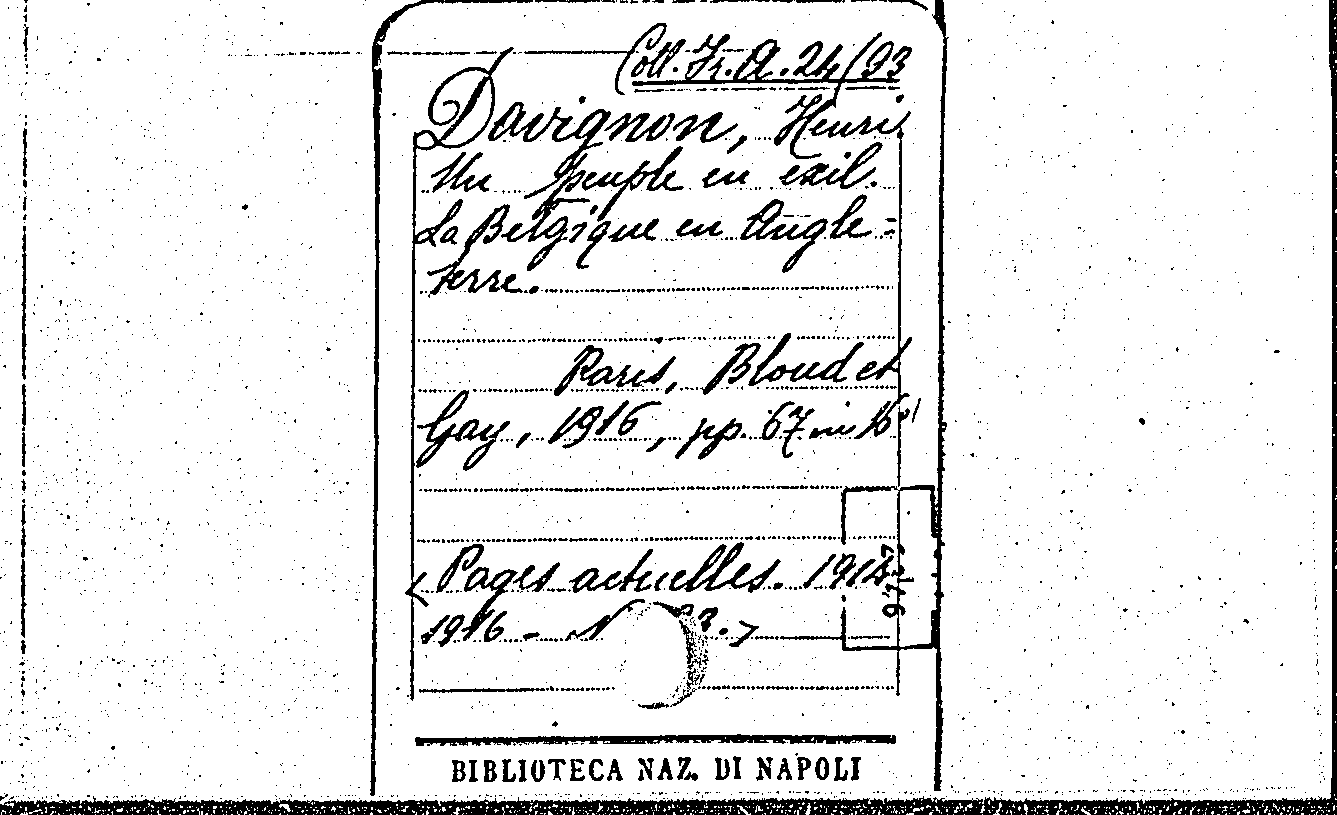 Coll. Fr. A. 24/93
Davignon, Henri.
Un peuple en exil.
La Belgique en Angle=
terre.
Paris, Bloud et
Gay, 1916, pp. 67 in 16°
<Pages actuelles. 1914
1916 - N 93.>
BIBLIOTECA NAZ. DI NAPOLI